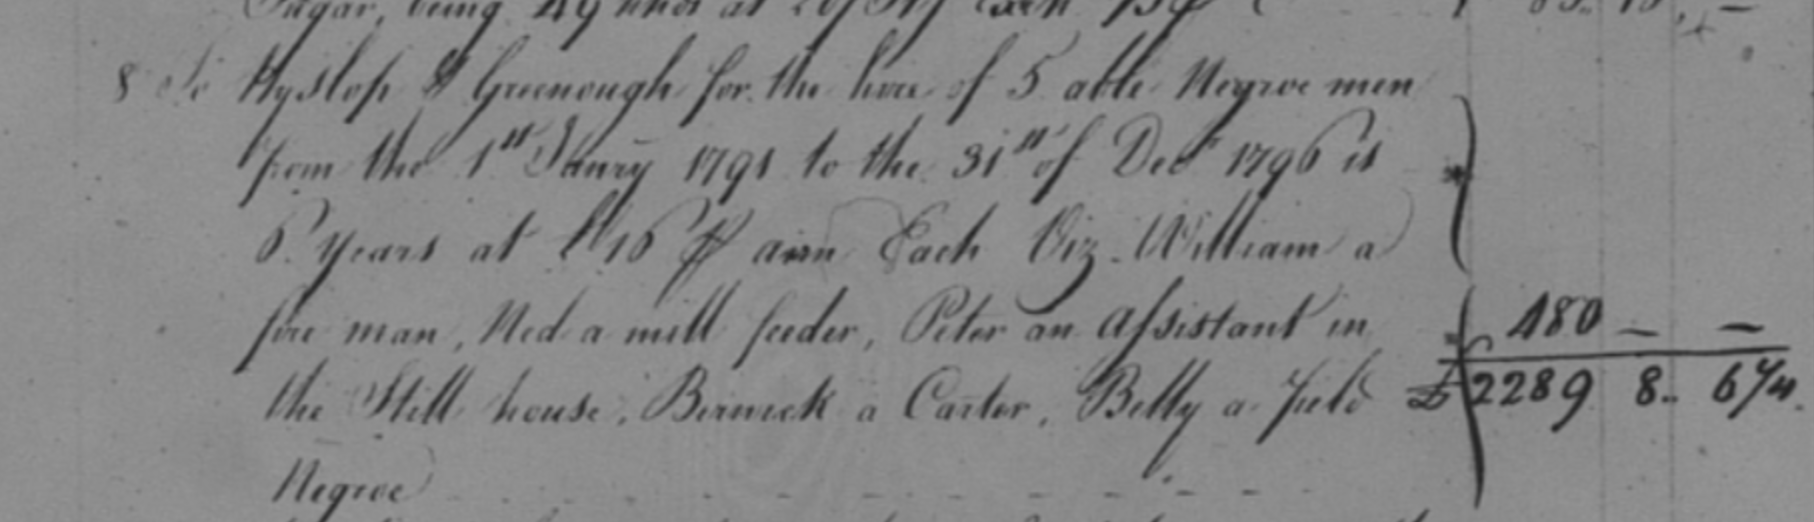 Sugar, being 49 hhds at each
8 To Hyslop & Greenough for the hire of 5 able Negroe men
from the 1st Janry 1791 to the 31st of Decr 1796 is
6 Years at £16 ⅌ ann Each Viz. William a
fire man, Ned a mill feeder, Peter an Assistant in 480 — —
the Still house, Berwick a Carter, Billy a field £2289 8.. 6 3/4
Negroe